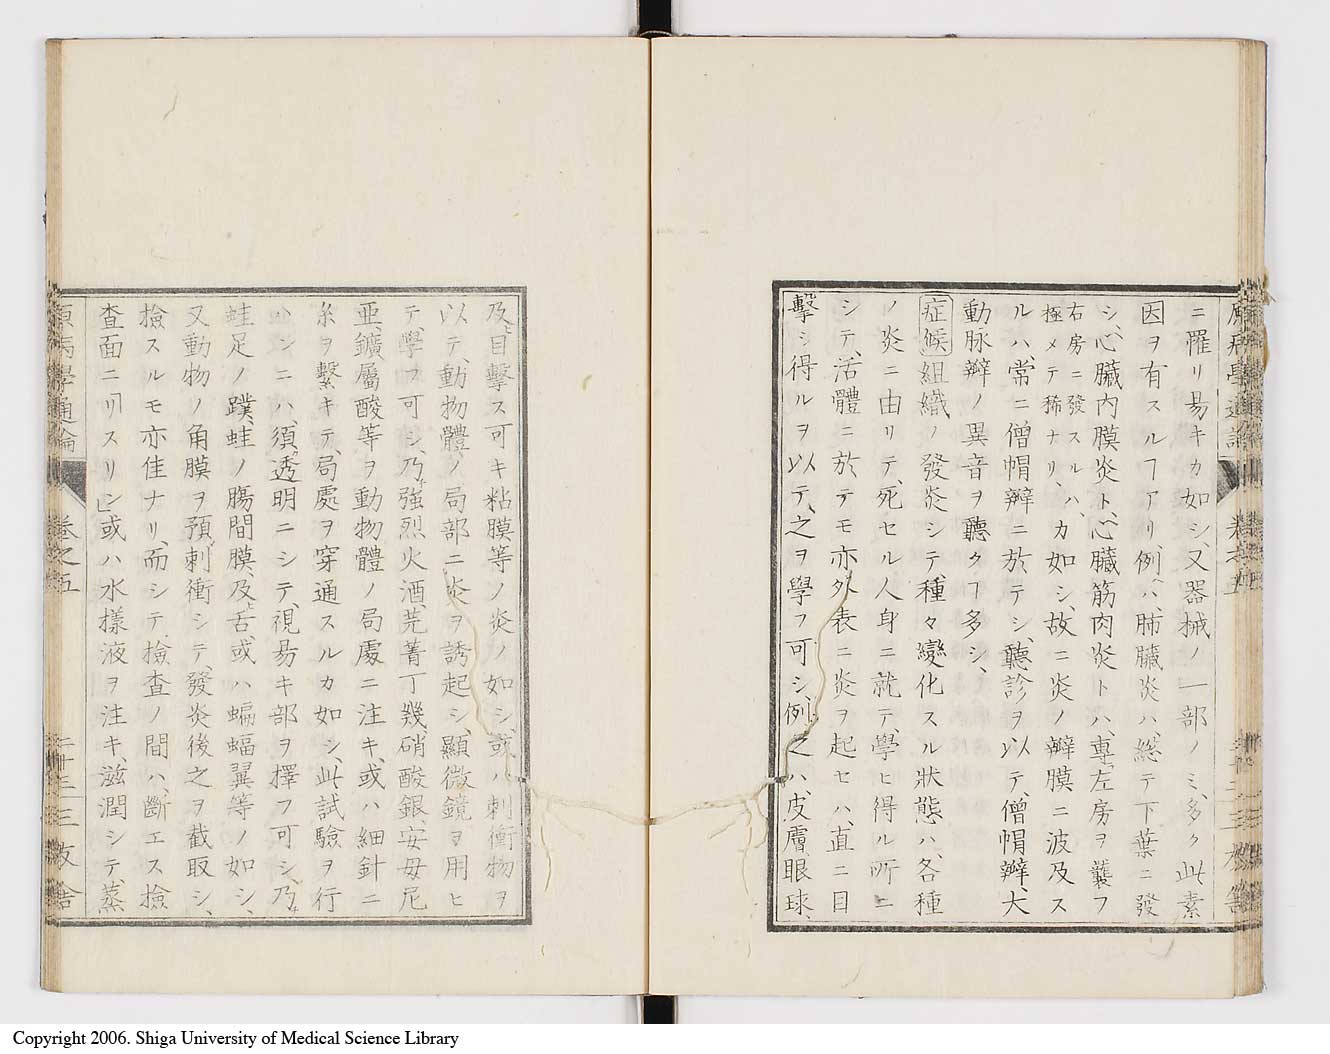 ニ罹リ易キカ如シ、又器械ノ一部ノミ、多ク此素
因ヲ有スルヿアリ、例ヘハ、肺臓炎ハ、総テ下葉ニ發
シ、心臓内膜炎ト、心臓筋肉炎トハ、專ラ左房ヲ襲フ
右房ニ發スルハ、
極メテ稀ナリ、
カ如シ、故ニ炎ノ辯膜ニ波及ス
ルハ、常ニ僧帽辯ニ於テシ、聽診ヲ以テ、僧帽辯、大
動脉辯ノ異音ヲ聽クヿ多シ、
症候 組織ノ發炎シテ種々變化スル狀態ハ、各種
ノ炎ニ由リテ、死セル人身ニ就テ學ヒ得ル所ニ
シテ、活體ニ於テモ亦外表ニ炎ヲ起セハ、直ニ目
擊シ得ルヲ以テ、之ヲ學フ可シ、例之ハ、皮膚、眼球
及ヒ目擊ス可キ粘膜等ノ炎ノ如シ、或ハ刺衝物ヲ
以テ、動物體ノ局部ニ炎ヲ誘起シ、顯微鏡ヲ用ヒ
テ、學フ可シ、乃チ強烈火酒、芫菁丁幾、硝酸銀、安母尼
亜、鑛屬酸等ヲ動物體ノ局處ニ注キ、或ハ細針ニ
糸ヲ繫キテ、局處ヲ穿通スルカ如シ、此試驗ヲ行
ハンニハ、須ク透明ニシテ、視易キ部ヲ擇フ可シ、乃チ
蛙足ノ蹼、蛙ノ腸間膜、及ヒ舌、或ハ蝙蝠翼等ノ如シ、
又動物ノ角膜ヲ預メ刺衝シテ、發炎後之ヲ截取シ、
檢スルモ亦佳ナリ、而シテ、檢査ノ間ハ、斷エス檢
査面ニ「リスリン」或ハ水樣液ヲ注キ、滋潤シテ、蒸
原病學通論 卷之五 二十三 三友舎